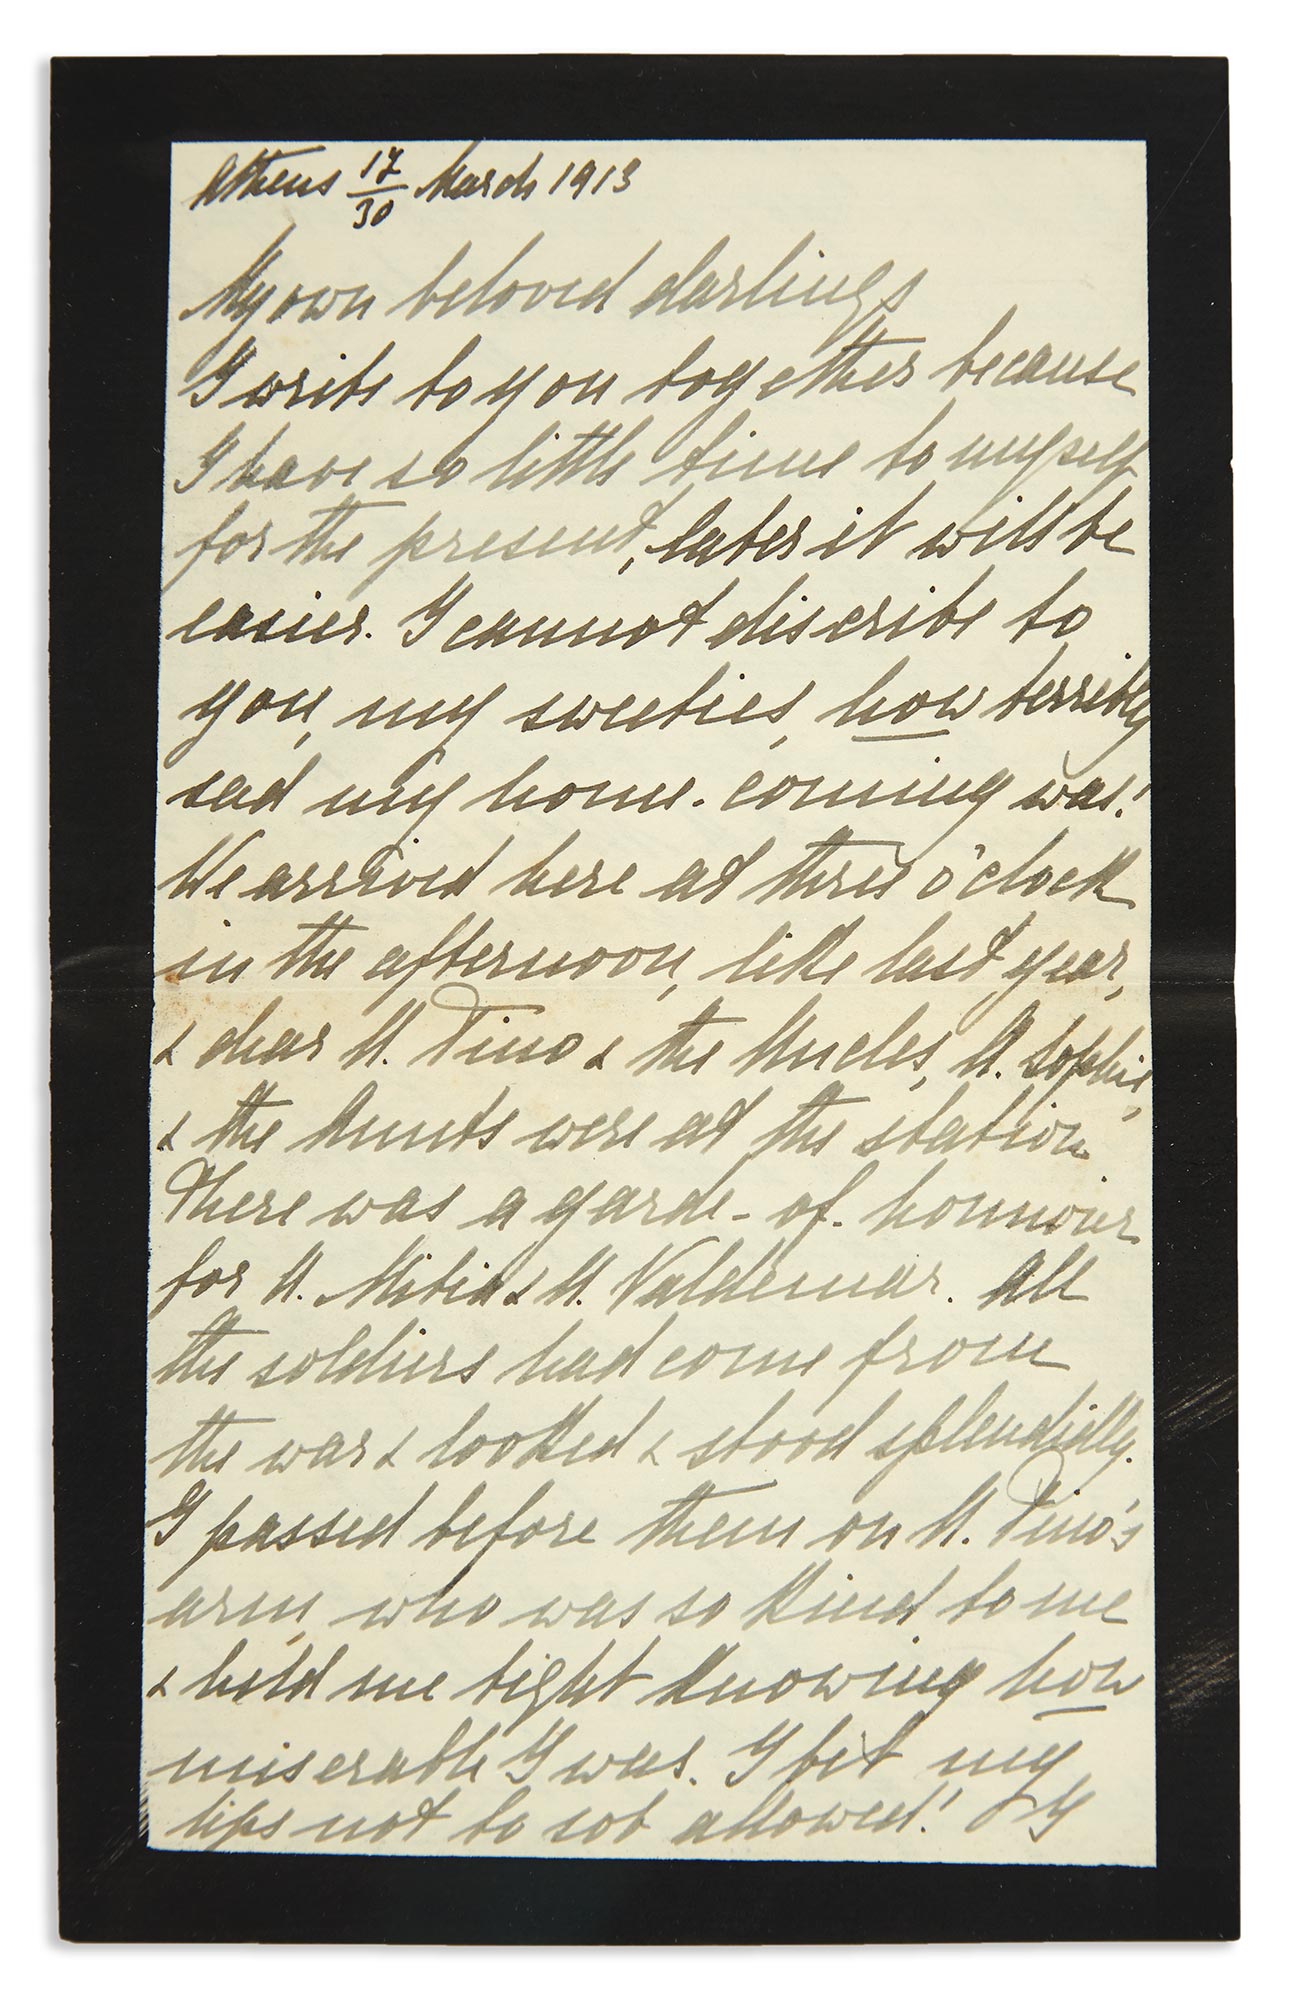 Athens 17/30 March 1913
My own beloved darlings
I write to you together because
I have so little time to myself
for the present, later it will be
easier. I cannot discribe to
you, my sweeties, how terribly
sad my home-coming was!
We arrived here at three o'clock
in the afternoon, like last year,
& dear U. Tino & the Uncles, A. Sophie,
& the Aunts were at the station
There was a garde-of-honnour
for U. Mitia & U. Valdemar. All
the soldiers had come from
the war & looked & stood splendidly.
I passed before them on U. Tino's
arm, who was so kind to me
& held me tight knowing how
miserable I was. I bit my
lips not to sob allowed!